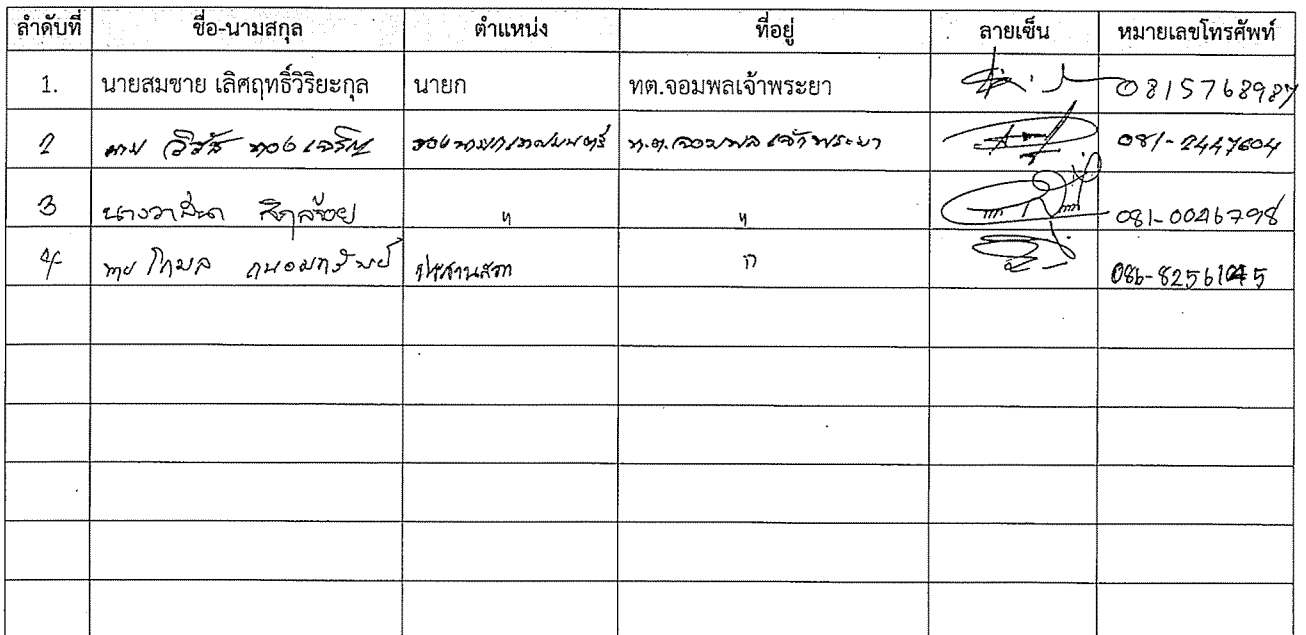 ลำดับที่ ชื่อ-นามสกุล ตำแหน่ง ที่อยู่ ลายเซ็น หมายเลขโทรศัพท์
1. นายสมชาย เลิศฤทธิ์วิริยะกุล นายก ทต.จอมพลเจ้าพระยา 0815768987
2 นาย ทองเจริญ รองนายกเทศมนตรี ท.ต.จอมพลเจ้าพระยา 081-2447604
3 นางวาสนา " " 081-0026798
4 นาย โกมล ถนอมทรัพย์ ประธานสภา " 086-8256145